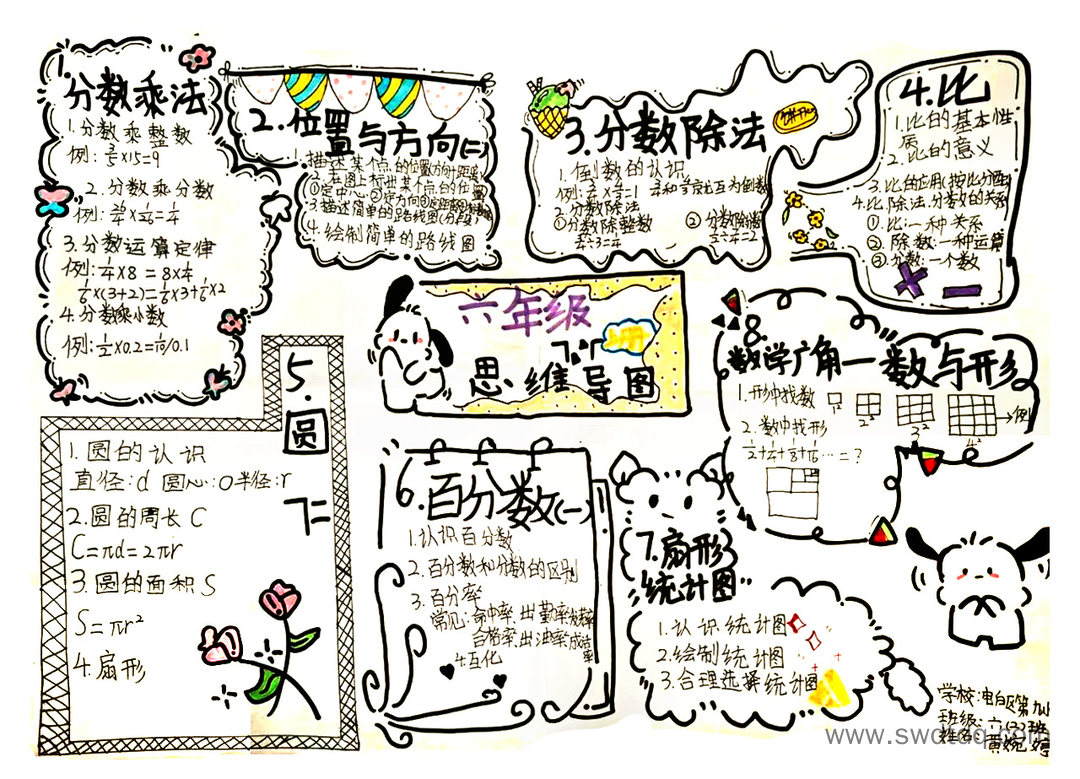 1.
分数乘法
1.分数乘整数
例: 3/5×15=9
2.分数乘分数
3.分数运算定律
例: 1/4×8=8×1/4
1/6×(3+2)=1/6×3+1/6×2
4.分数乘小数
例:1/2×0.2=
0.1
2.位置与方向(二)
1.描述某个点的位置(方向+距离)
2.在图上标出某个点的位置
①定中心②定方向③
3.描述简单的路线图(分段)
4.绘制简单的路线图
3.分数除法
1.倒数的认识
例:
互为倒数
2.分数除法
①分数除整数
②分数除
4.比
1.比的基本性
质
2.比的意义
3.比的应用(按比分配)
4.比.除法.分数的关系
①比:一种关系
②除数:一种运算
③分数:一个数
六年级
上册
思维导图
5.圆
1.圆的认识
直径:d 圆心:O 半径:r
2.圆的周长C
C=πd=2πr
3.圆的面积S
S=πr²
4.扇形
6.百分数(一)
1.认识百分数
2.百分数和分数的区别
3.百分率
常见:命中率.出勤率发芽率
合格率.出油率成活率
4.互化
7.扇形
统计图
1.认识统计图
2.绘制统计图
3.合理选择统计图
8.
数学广角一数与形
1.形中找数
1² 2² 3² 4² 例
2.数中找形
1/2+1/4+1/8+1/16…=?
学校:电白区第九小
班级:六(3)班
姓名:黄婉婷
www.swdtdq.com